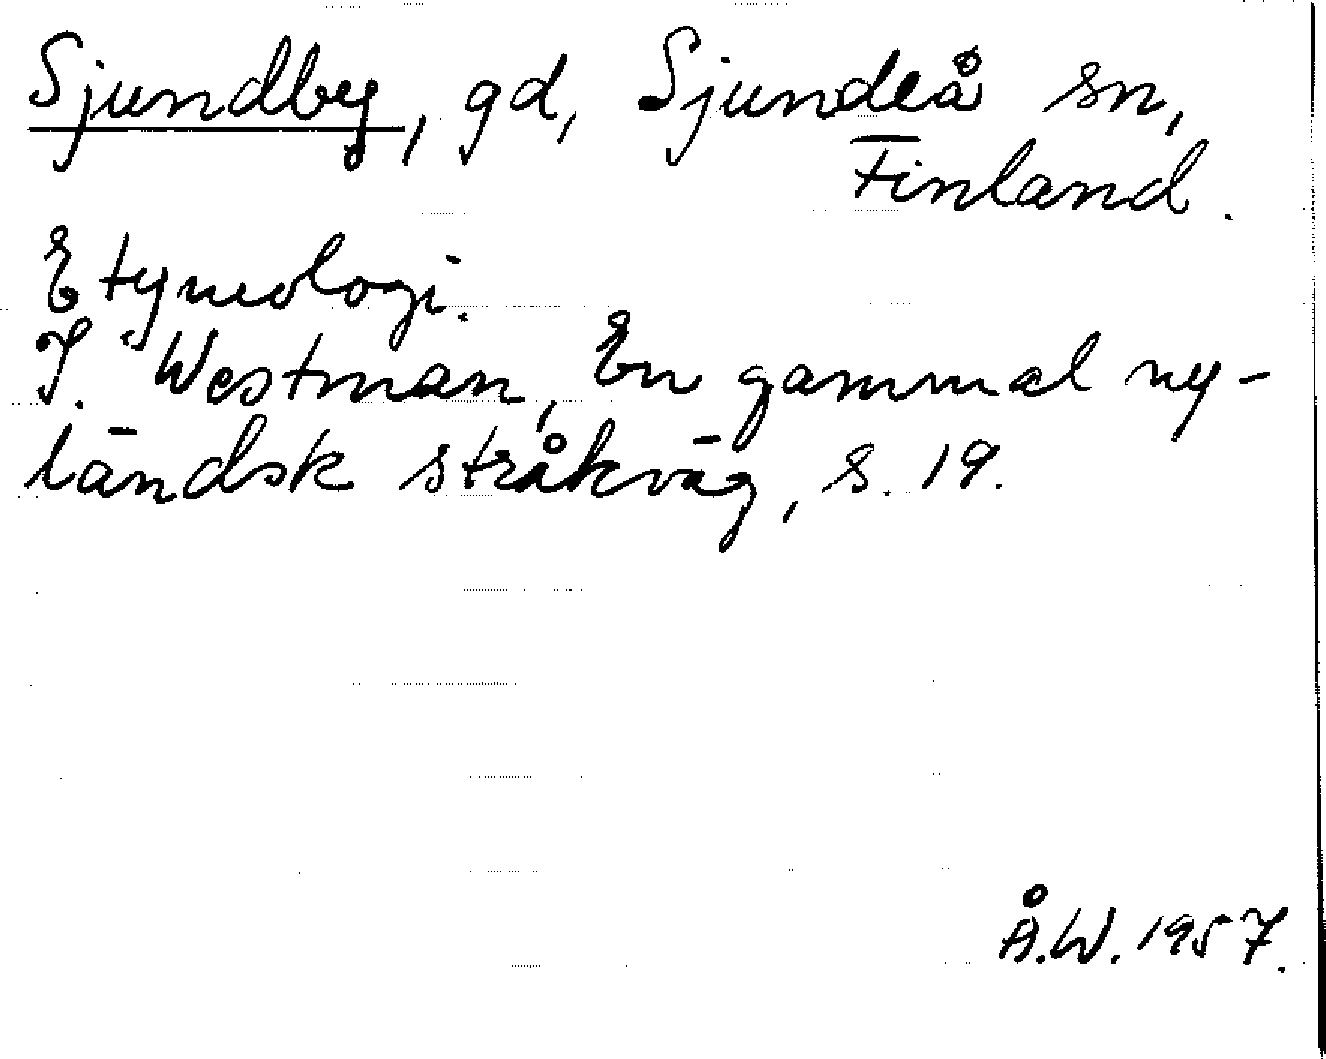 Sjundby, gd, Sjundeå sn,
Finland.
Etymologi.
I. Westman, En gammal ny-
ländsk stråkväg, s. 19.
Å.W. 1957.